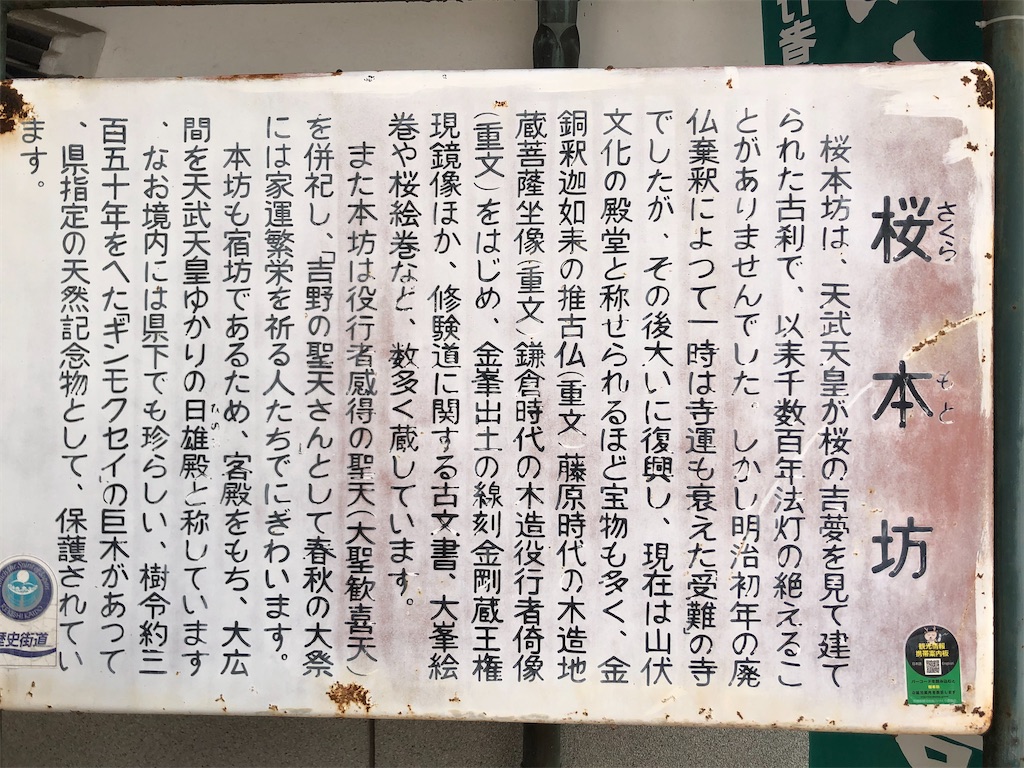 桜本坊
さくら
もと
桜本坊は、天武天皇が桜の吉夢を見て建て
られた古刹で、以来千数百年法灯の絶えるこ
とがありませんでした。しかし明治初年の廃
仏棄釈によって一時は寺運も衰えた「受難」の寺
でしたが、その後大いに復興し、現在は山伏
文化の殿堂と称せられるほど宝物も多く、金
銅釈迦如来の推古仏(重文)藤原時代の木造地
蔵菩薩坐像(重文)鎌倉時代の木造役行者倚像
(重文)をはじめ、金峯出土の線刻金剛蔵王権
現鏡像ほか、修験道に関する古文書、大峯絵
巻や桜絵巻など、数多く蔵しています。
また本坊は役行者感得の聖天(大聖歓喜天)
を併祀し、「吉野の聖天さんとして春秋の大祭
には家運繁栄を祈る人たちでにぎわいます。
本坊も宿坊であるため、客殿をもち、大広
間を天武天皇ゆかりの日雄殿と称しています
、なお境内には県下でも珍らしい、樹令約三
百五十年をへた「ギンモクセイ」の巨木があって
、県指定の天然記念物として、保護されてい
ます。
歴史街道
観光情報
携帯案内板